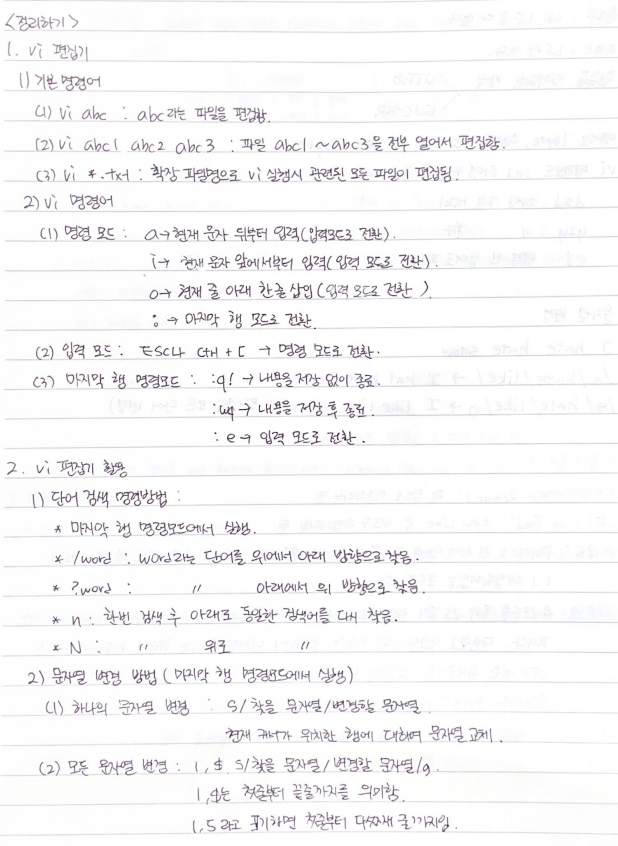 <정리하기>
1. vi 편집기
1) 기본 명령어
(1) vi abc : abc라는 파일을 편집함.
(2) vi abc1 abc2 abc3 : 파일 abc1 ~ abc3을 전부 열어서 편집함.
(3) vi *.txt : 확장 파일명으로 vi 실행시 관련된 모든 파일이 편집됨.
2) vi 명령어
(1) 명령 모드 : a → 현재 문자 뒤부터 입력(입력모드로 전환).
i → 현재 문자 앞에서부터 입력(입력 모드로 전환).
o → 현재 줄 아래 한줄 삽입(입력 모드로 전환)
: → 마지막 행 모드로 전환.
(2) 입력 모드 : ESC나 Ctrl + [ → 명령 모드로 전환.
(3) 마지막 행 명령모드 : :q! → 내용을 저장 없이 종료.
:wq → 내용을 저장 후 종료.
: e → 입력 모드로 전환.
2. vi 편집기 활용
1) 단어 검색 명령방법 :
* 마지막 행 명령모드에서 실행.
* /word : word라는 단어를 위에서 아래 방향으로 찾음.
* ?word : 〃 아래에서 위 방향으로 찾음.
* n : 한번 검색 후 아래로 동일한 검색어를 다시 찾음.
* N : 〃 위로 〃
2) 문자열 변경 방법 (마지막 행 명령모드에서 실행)
(1) 하나의 문자열 변경 : S/찾을 문자열/변경할 문자열.
현재 커서가 위치한 행에 대하여 문자열 교체.
(2) 모든 문자열 변경 : 1,$ S/찾을 문자열/변경할 문자열/g.
1,$는 첫줄부터 끝줄까지를 의미함.
1,5 라고 표기하면 첫줄부터 다섯째 줄까지임.